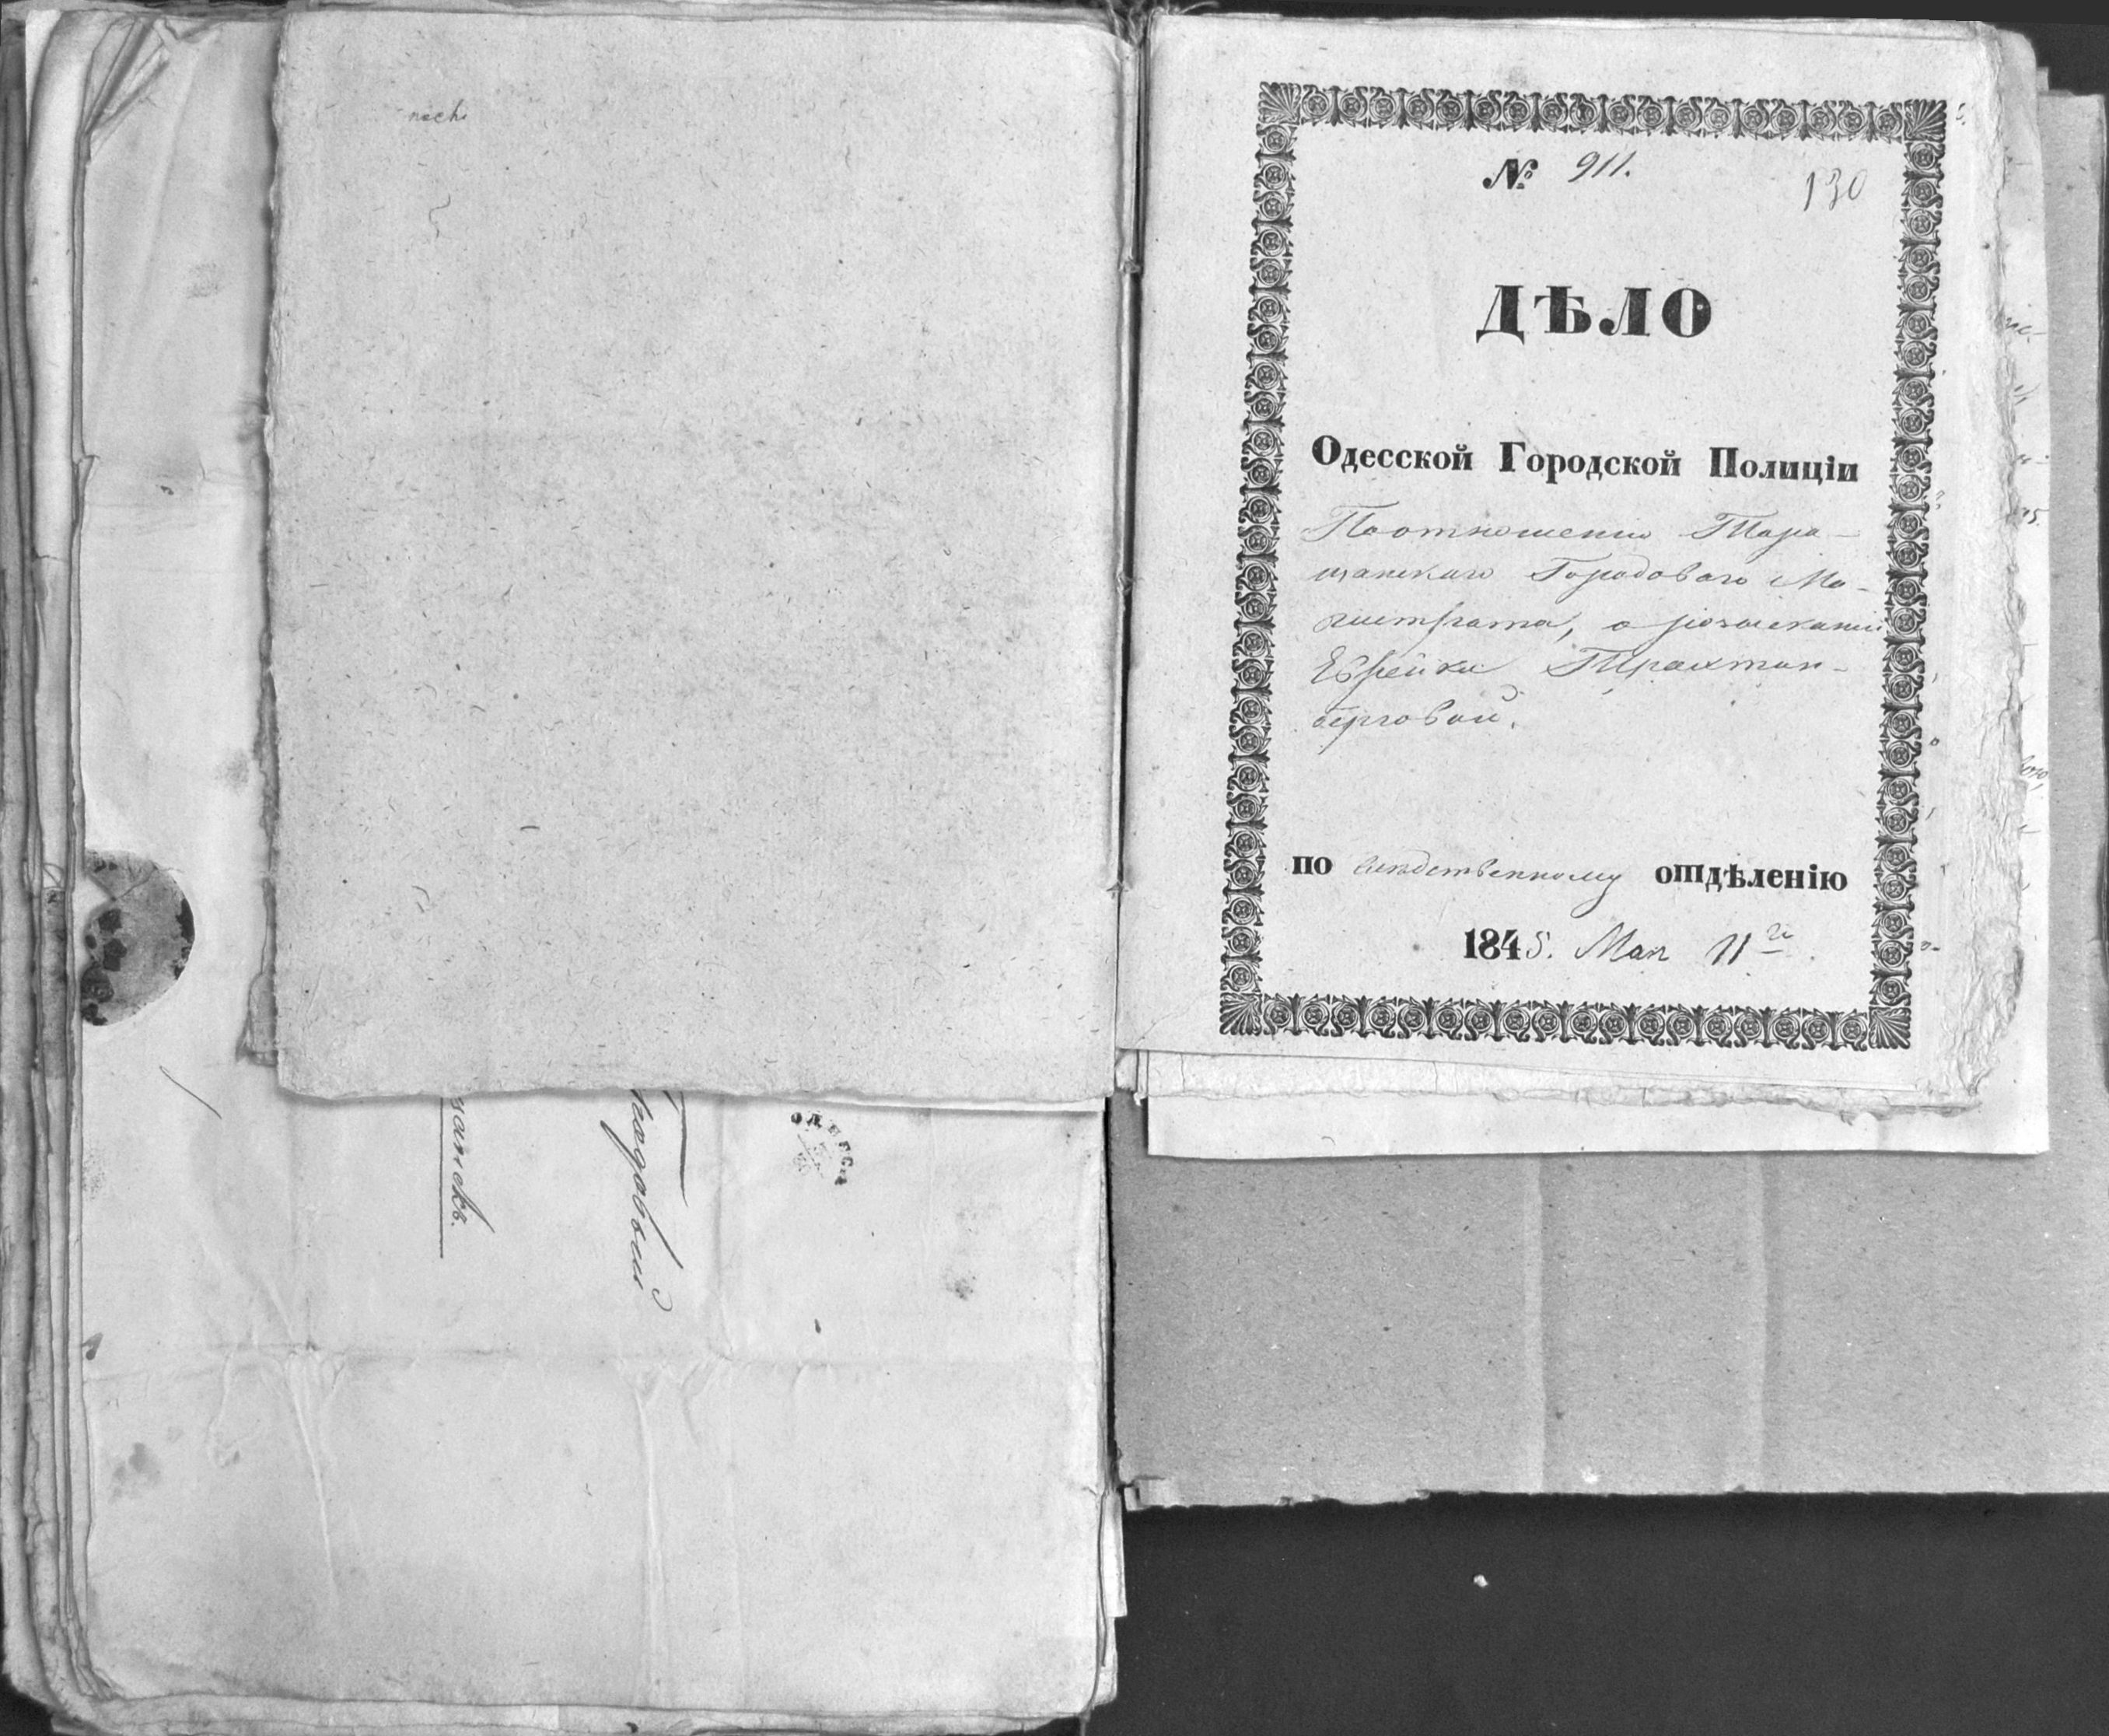 № 911.
130
ДѢЛО
Одесской Городской Полиціи
По отношенію Тара-
щанскаго Городоваго Ма-
гистрата, о розысканіи
Еврейки Трахтен-
берговой.
по следственному отдѣленію
1845. Мая 11го
Градовый